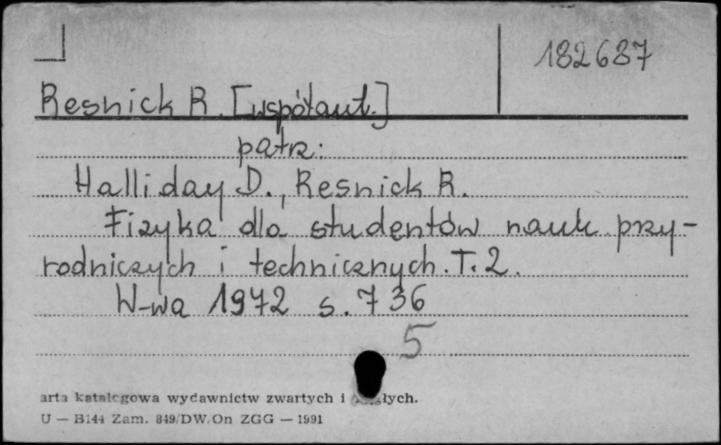 182637
Resnick R. [współaut.]
patrz:
Halliday D., Resnick R.
Fizyka dla studentów nauk przy-
rodniczych i technicznych. T. 2.
W-wa 1972 s. 736
5
arta katalogowa wydawnictw zwartych i
U — B144 Zam. 849/DW/On ZGG — 1991